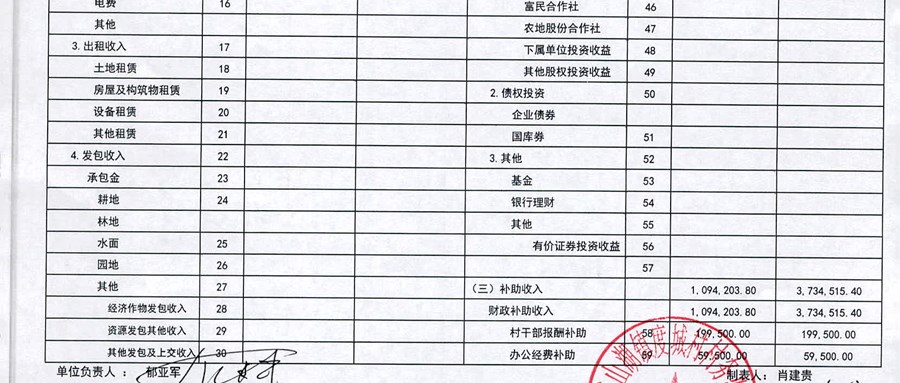 电费 16 富民合作社 46
其他 农地股份合作社 47
3.出租收入 17 下属单位投资收益 48
土地租赁 18 其他股权投资收益 49
房屋及构筑物租赁 19 2.债权投资 50
设备租赁 20 企业债券
其他租赁 21 国库券 51
4.发包收入 22 3.其他 52
承包金 23 基金 53
耕地 24 银行理财 54
林地 其他 55
水面 25 有价证券投资收益 56
园地 26 57
其他 27 (三)补助收入 1,094,203.80 3,734,515.40
经济作物发包收入 28 财政补助收入 1,094,203.80 3,734,515.40
资源发包其他收入 29 村干部报酬补助 58 199,500.00 199,500.00
其他发包及上交收入 30 办公经费补助 59 59,500.00 59,500.00
单位负责人 : 郁亚军 制表人: 肖建贵
山湖镇度城村